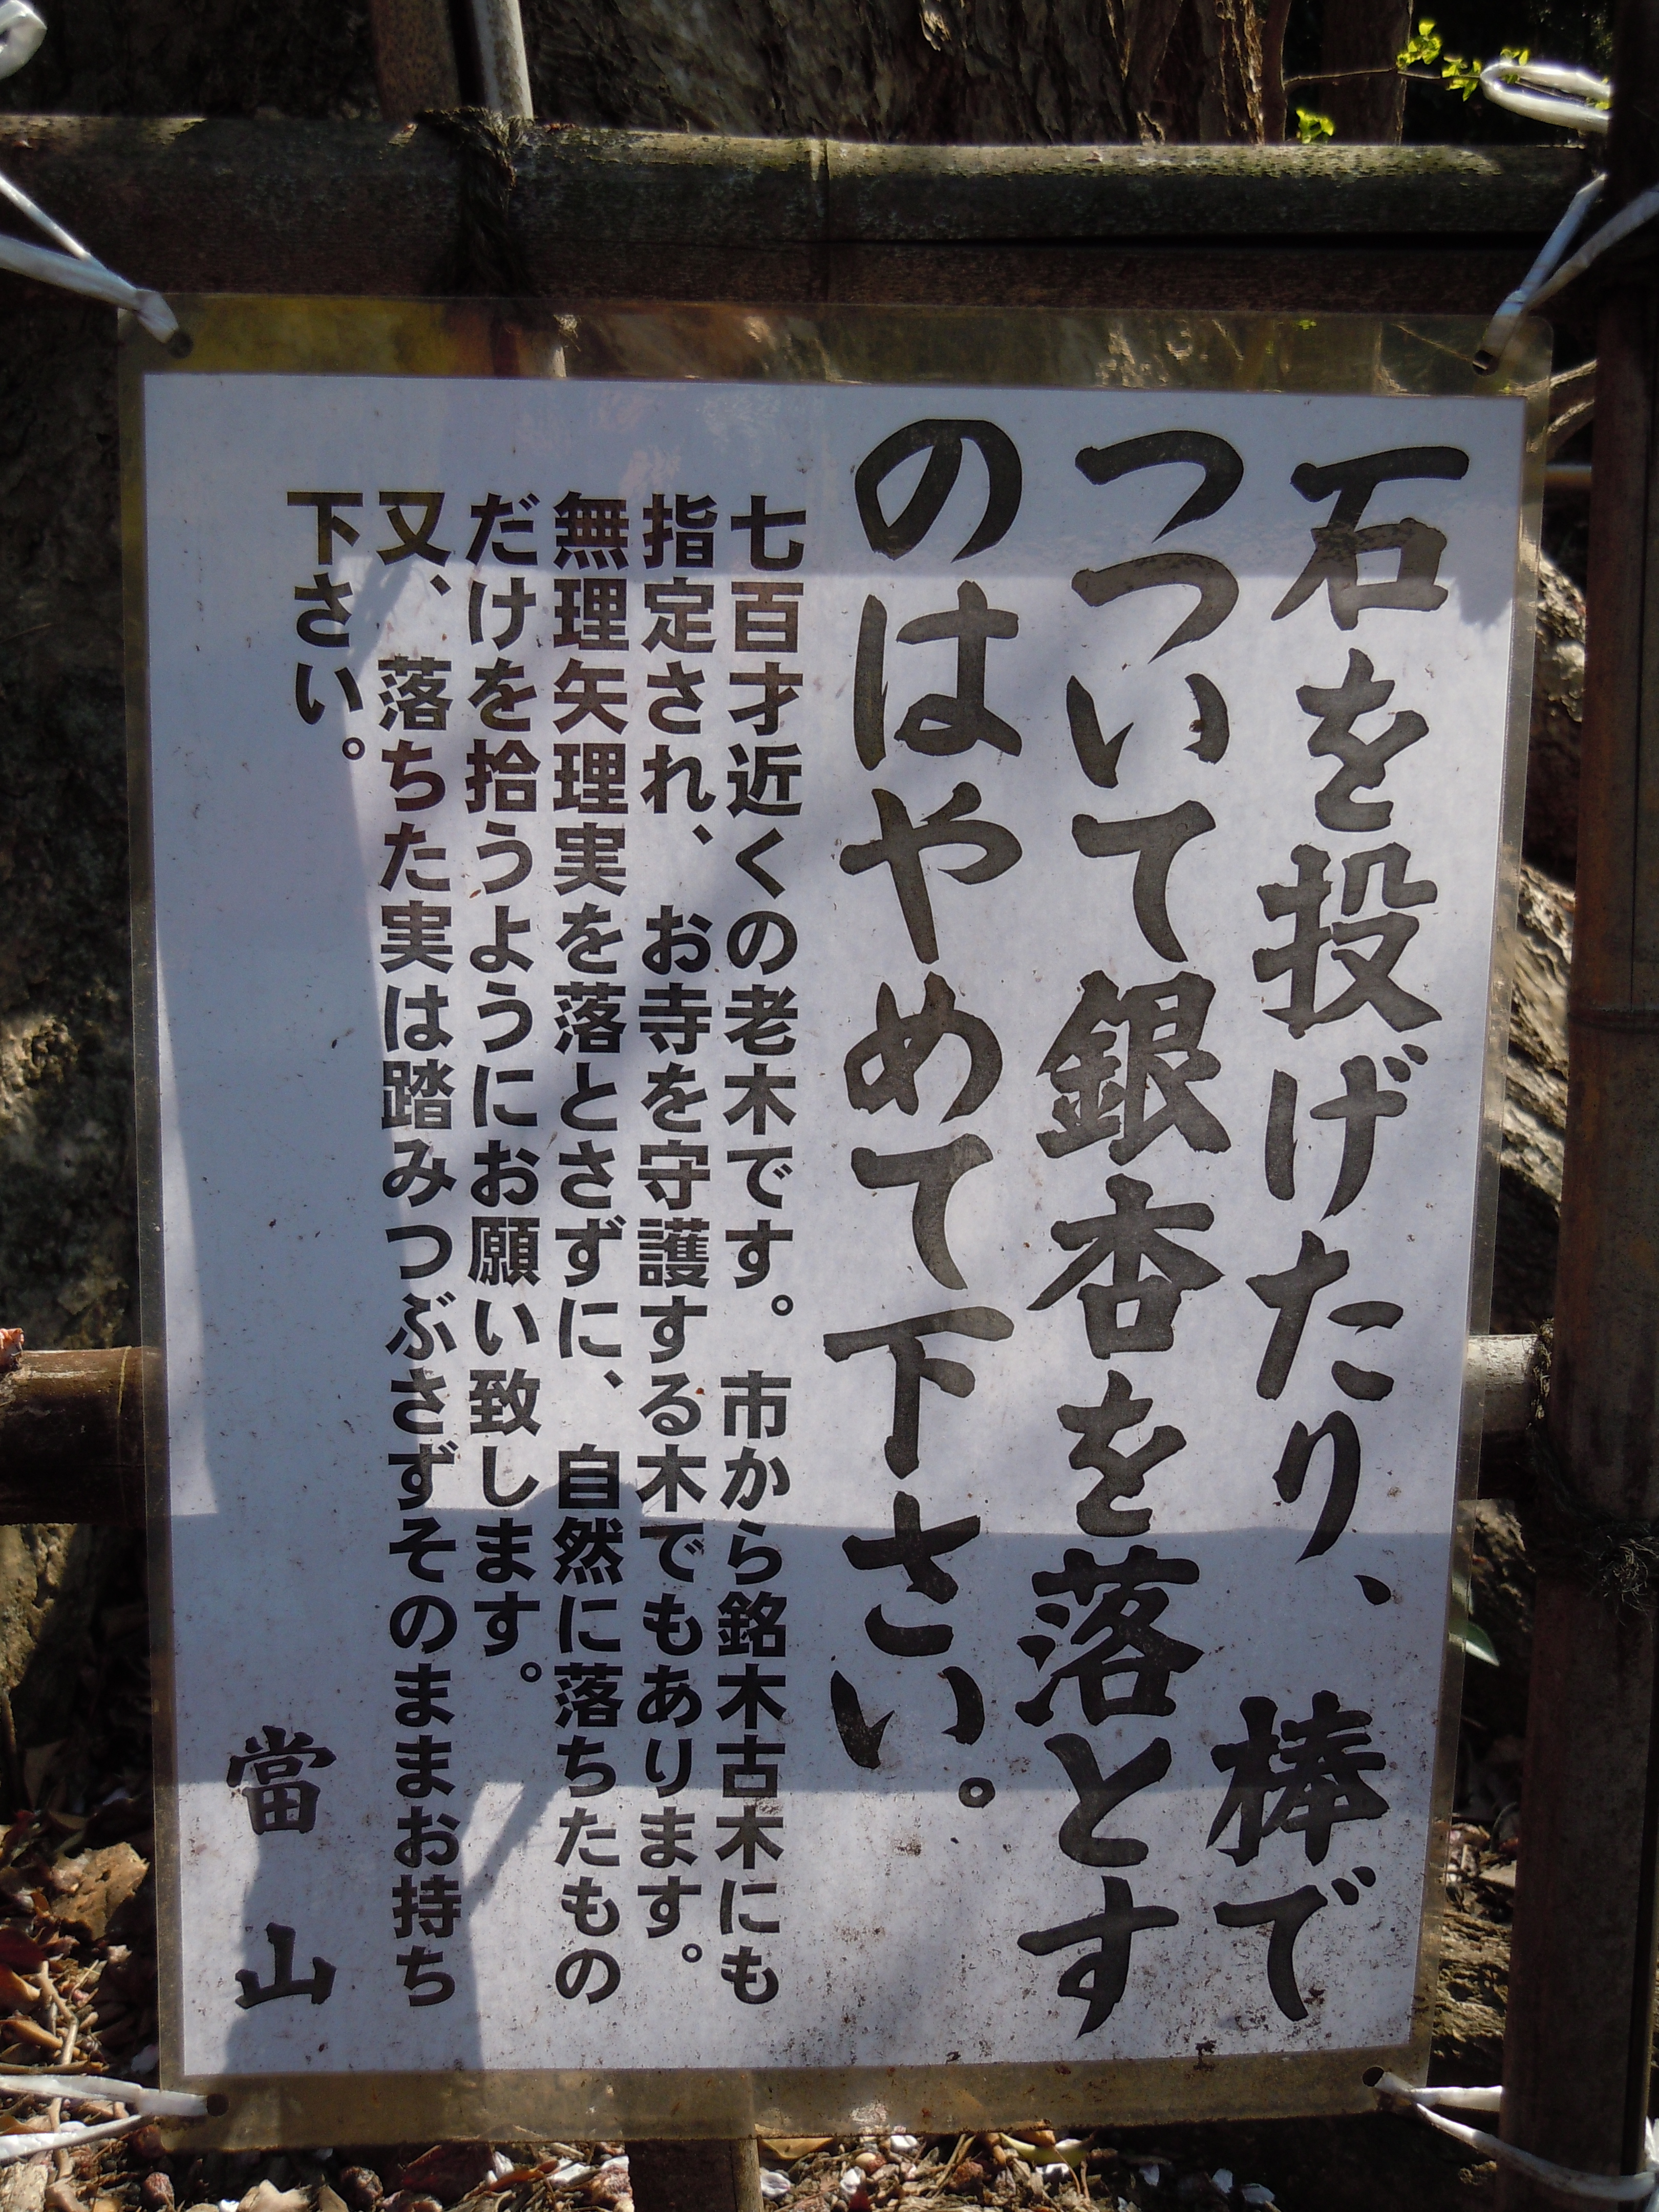 石を投げたり、棒で
つついて銀杏を落とす
のはやめて下さい。
七百才近くの老木です。市から銘木古木にも
指定され、お寺を守護する木でもあります。
無理矢理実を落とさずに、自然に落ちたもの
だけを拾うようにお願い致します。
又、落ちた実は踏みつぶさずそのままお持ち
下さい。
當山